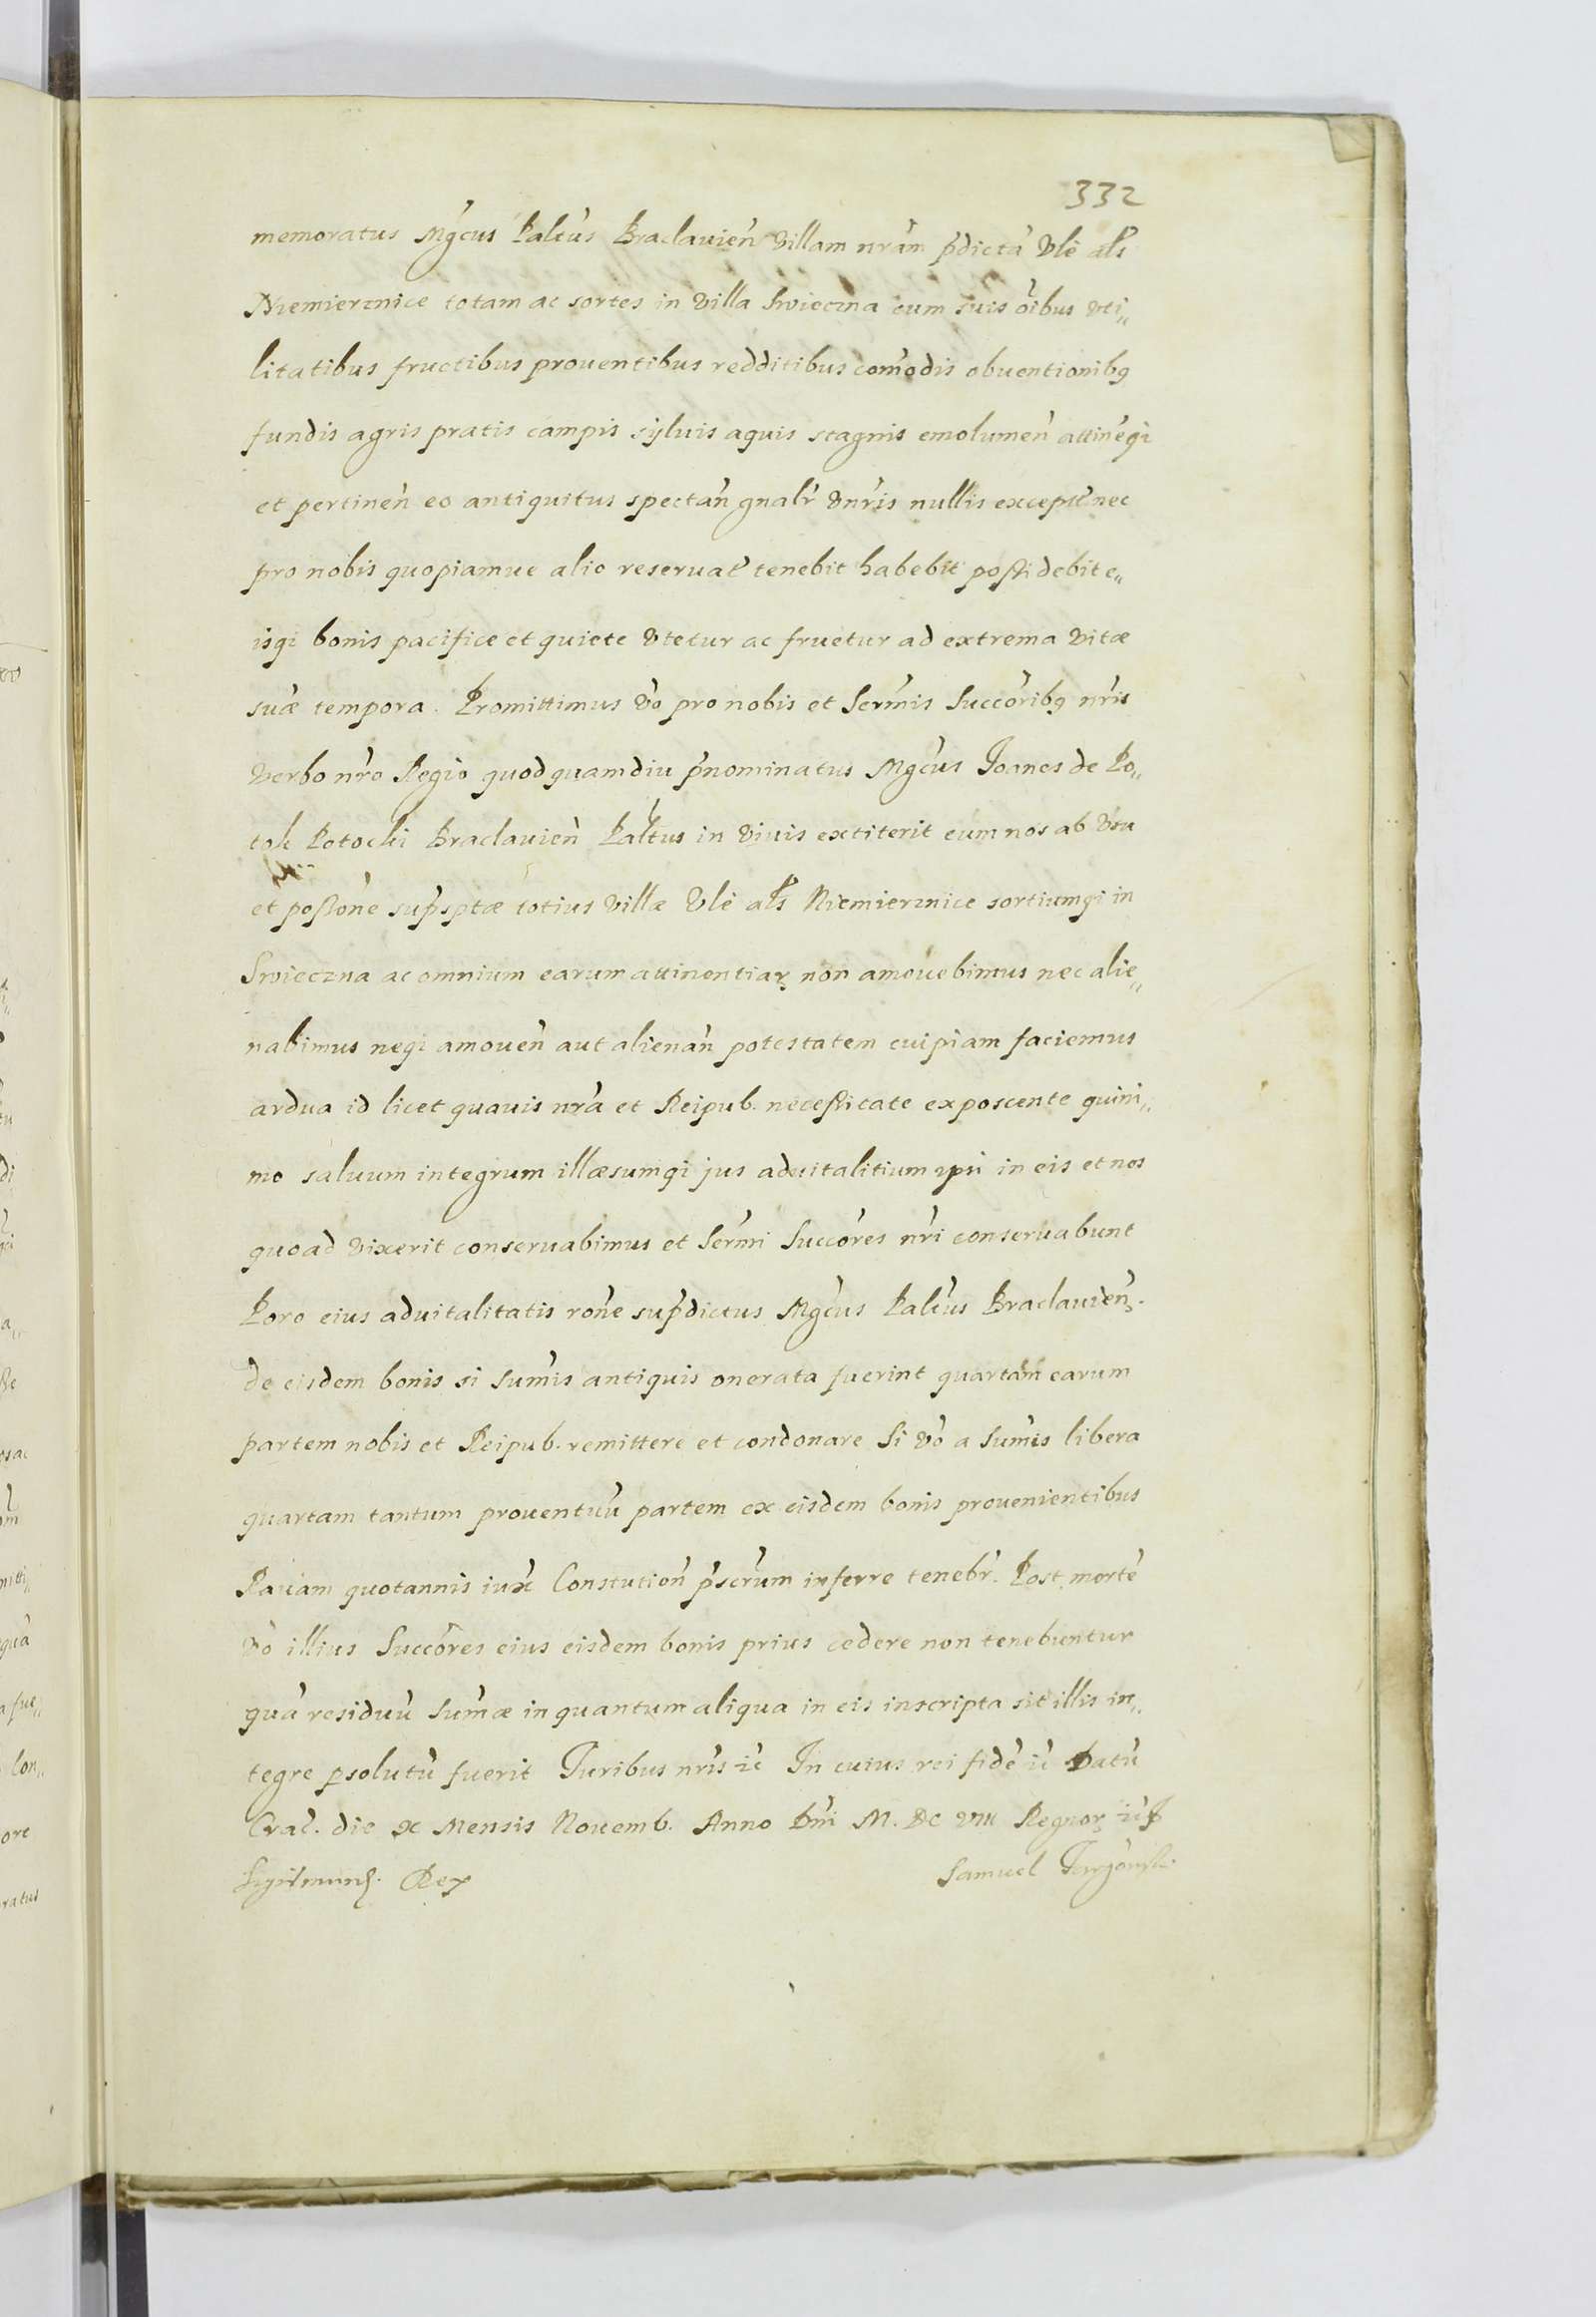 332
memoratus Mg̃cus Palt̃us Braclavien̾ Villam nr̃am p̃dictã Vlě al̃s
Niemierznice totam ac sortes in Villa Swieczna cum suis o͂ibus vti„
litatibus fructibus prouentibus redditibus com̃odis obuentionibꝫ
fundis agris pratis campis syluis aquis stagnis emolumen̾ attin̾eqꝫ
et pertinen̾ eo antiquitus spectan̾ gnalr̃ Vnr̃is nullis except̾ nec
pro nobis quopiamue alio reseruat̾ tenebit habebit possidebit e„
isqꝫ bonis pacifice et quiete Vtetur ac fruetur ad extrema Vitæ
suæ tempora. Promittimus Vo͂ pro nobis et Serm̃is Succo͂ribꝫ nr̃is
Verbo nr̃o Regio quod quamdiu p̃nominatus Mg̃cus Joanes de Po„
tok Potocki Braclavien̾ Palt̃us in Viuis extiterit eum nos ab Vsu
et possio͂ne sup̃sptæ totius Villæ Vlě al̃s Niemierznice sortiumqꝫ in
Swieczna ac omnium earum attinentiaꝝ non amouebimus nec alie„
nabimus neqꝫ amouen̾ aut alienan̾ potestatem cuipiam faciemus
ardua id licet quauis nr̃a et Reipub. necessitate exposcente quini„
mo saluum integrum illæsumqꝫ jus aduitalitium ipsi in eis et nos
quoad Vixerit conseruabimus et Serm̃i Succo͂res nr̃i conseruabunt
Poro eius aduitalitatis ro͂ne sup̃dictus Mg̃cus Palt̃us Braclavien̾.
de eisdem bonis si Sum̃is antiquis onerata fuerint quartam earum
partem nobis et Reipub. remittere et condonare Si Vo͂ a Sum̃is libera
quartam tantum prouentuũ partem ex eisdem bonis prouenientibus
Rauam quotannis iux̃ Constution̾ p̃scr̃um inferre tenebr̃. Post mortẽ
Vo͂ illius Succo͂res eius eisdem bonis prius cedere non tenebuntur
quã residuũ Sum̃æ in quantum aliqua in eis inscripta sit illis in„
tegre ꝑsolutũ fuerit Juribus nr̃is ꝛc̃ In cuius rei fidẽ ꝛc̃ Datũ
Crac̃. die X Mensis Nouemb. Anno Dn̾i M. DC VIII Regnoꝝ
Sigismund. Rex
Samuel